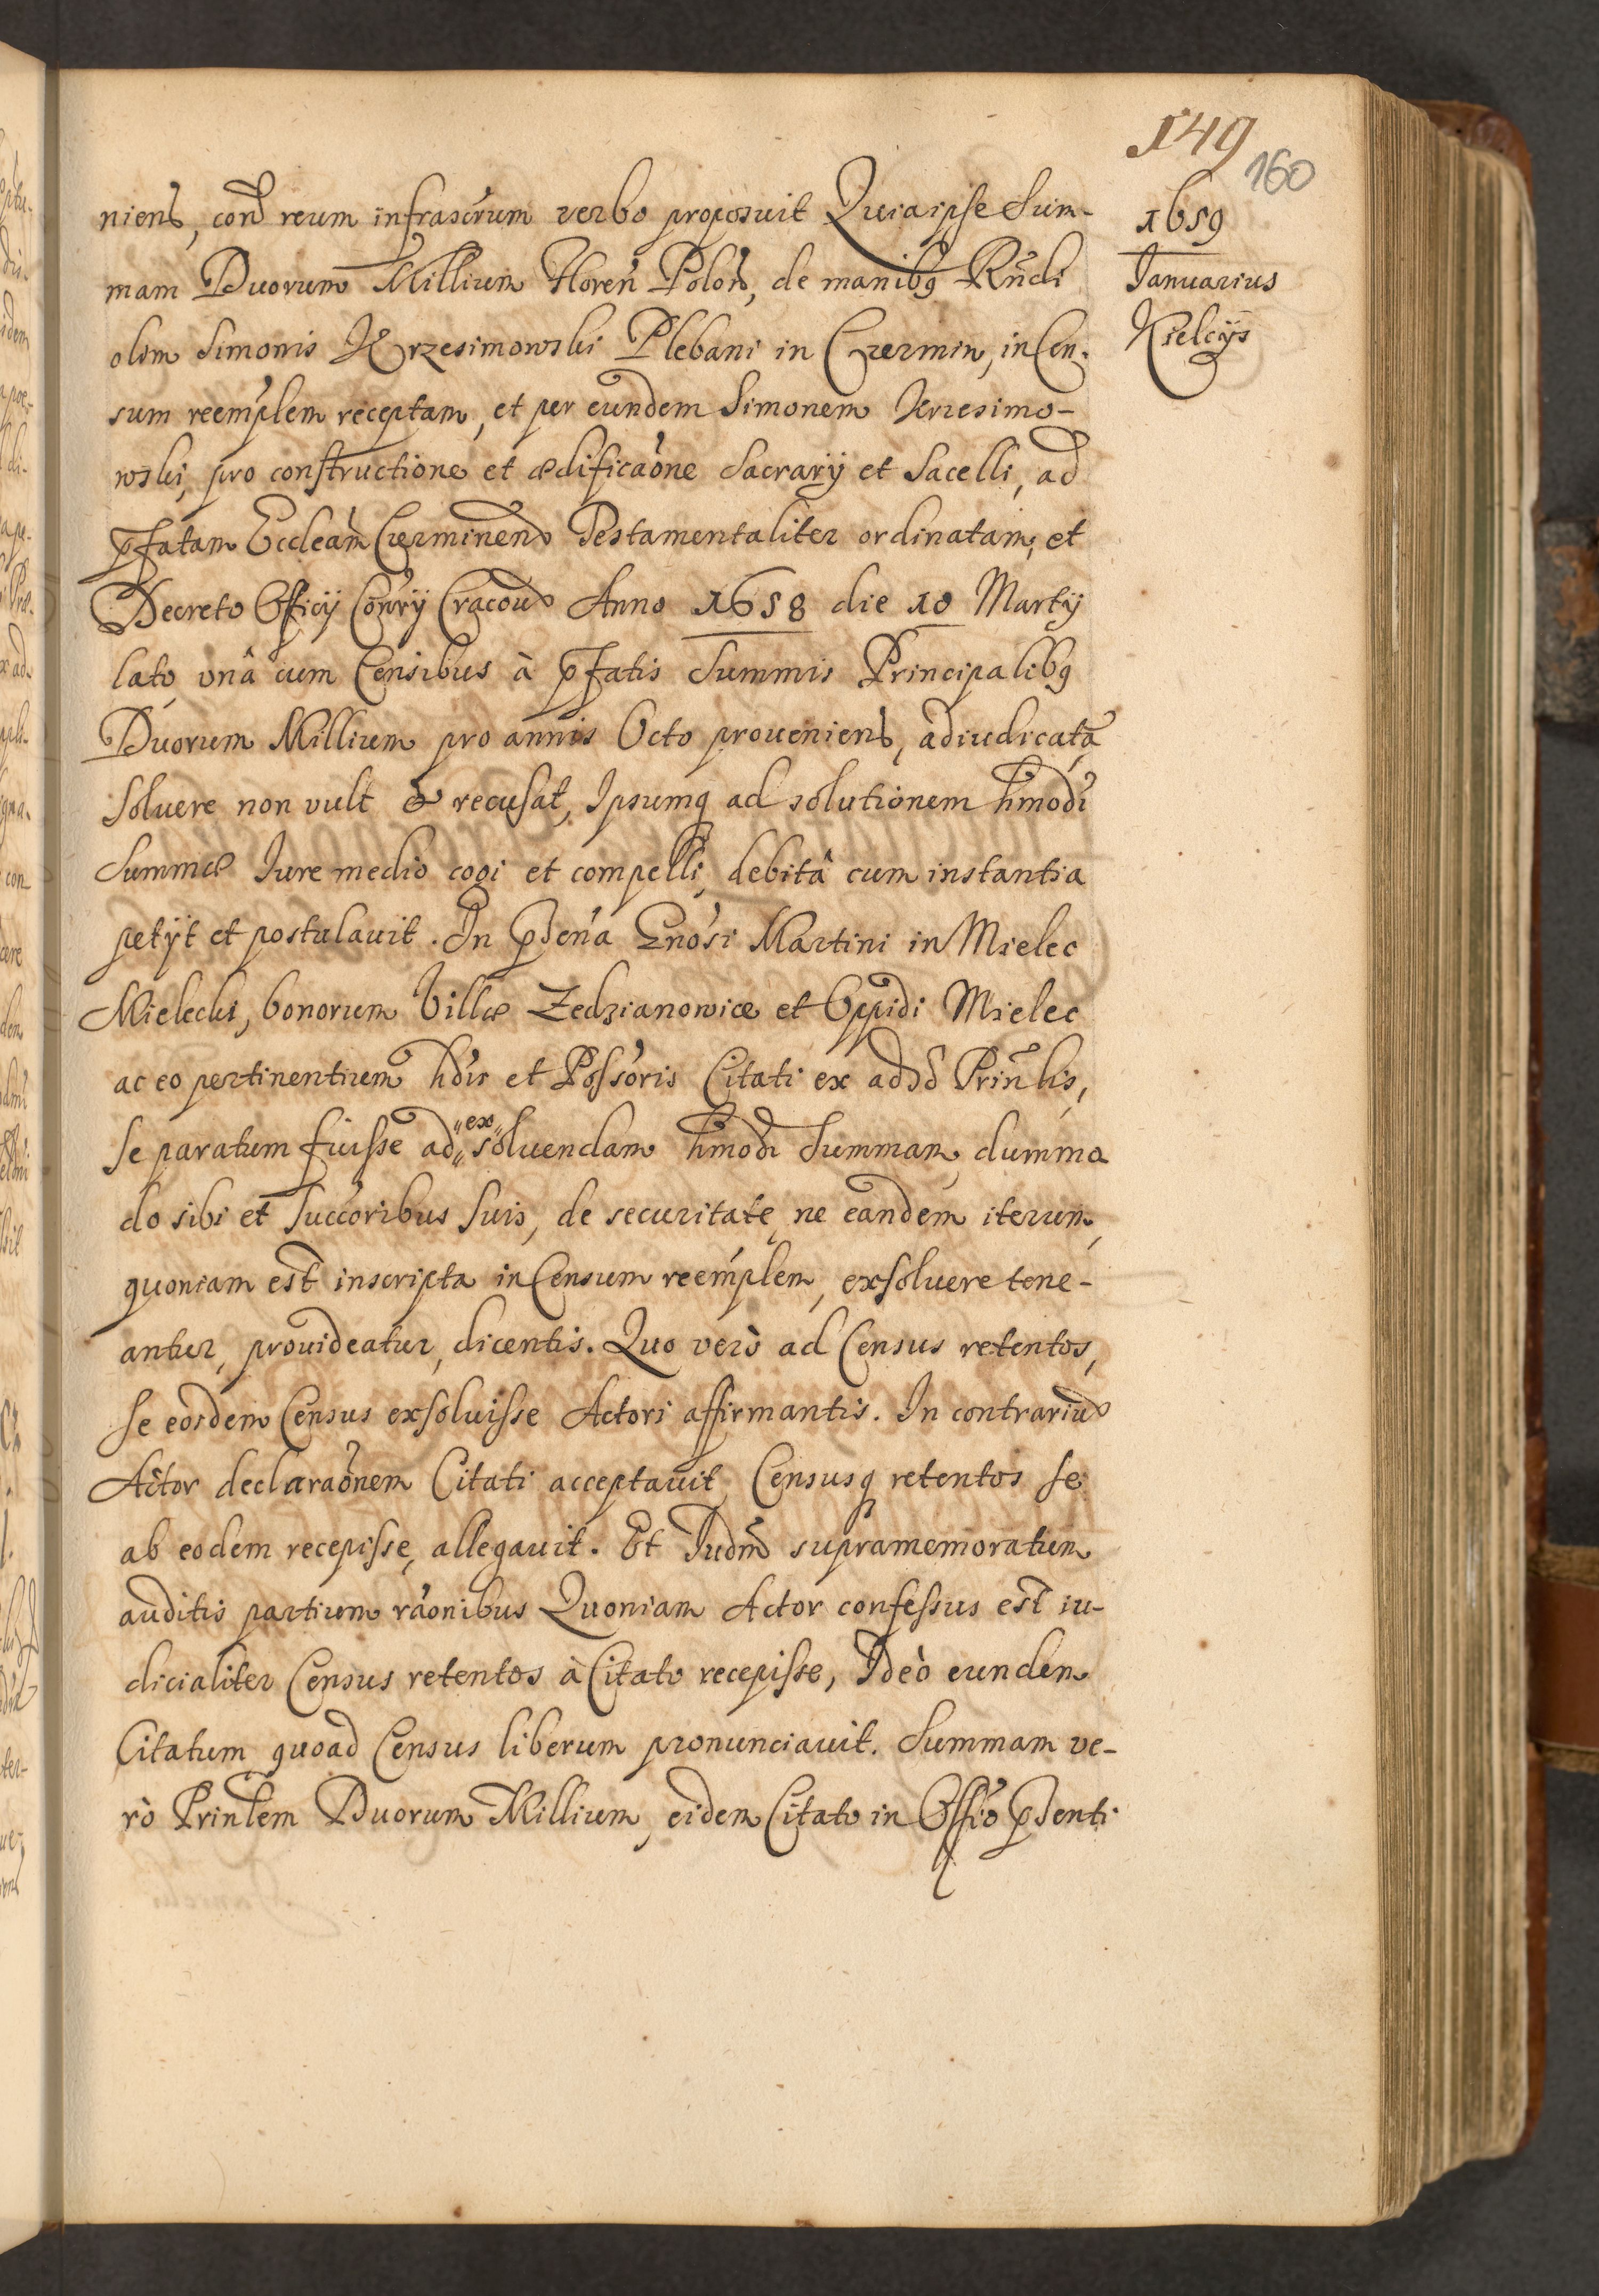 149
160
1659
Januarius
Kielcijs
niens, cont reum infrascrum verbo proposuit Quia ipse Sum-
mam Duorum Millium Floren Polon, de manibq Rndi
olim Simonis Krzesimowski Plebani in Czermin, in Cen-
sum reemplem receptam, et per eundem Simonem Krzesimo-
wski, pro constructione et ædificaone Sacrarij et Sacelli, ad
pfatam Eccleam Czerminen Testamentaliter ordinatam, et
Decreto Officij Consrij Cracou Anno 1658 die 18 Martij
lato, vnâ cum Censibus à pfatis Summis Principalibq
Duorum Millium pro annis Octo proueniens, adiudicatã
Soluere non vult & recusat, Ipsumq ad solutionem hmodi
Summæ Iure medio cogi et compelli, debitâ cum instantia
petijt et postulauit. In pntia Gnosi Martini in Mielec
Mielecki, bonorum Villæ Zedzianowice et Oppidi Mielec
ac eo pertinentium hdis et Possoris Citati ex aduso Prinlis,
se paratum fuisse ad "ex" soluendam hmodi Summam, dummo
do sibi et Succoribus suis, de securitate, ne eandem iterum,
quoniam est inscripta in Censum reemplem, exsoluere tene-
antur, prouideatur, dicentis. Quo verò ad Census retentos,
se eosdem Census exsoluisse Actori affirmantis. In contrariũ
Actor declaraonem Citati acceptauit, Censusq retentos se
ab eodem recepisse, allegauit. Et Iudm supramemoratum
auditis partium raonibus Quoniam Actor confessus est iu-
dicialiter Census retentos à Citato recepisse, Ideò eundem
Citatum quoad Census liberum pronunciauit. Summam ve-
rò Prinlem Duorum Millium, eidem Citato in Offio psenti